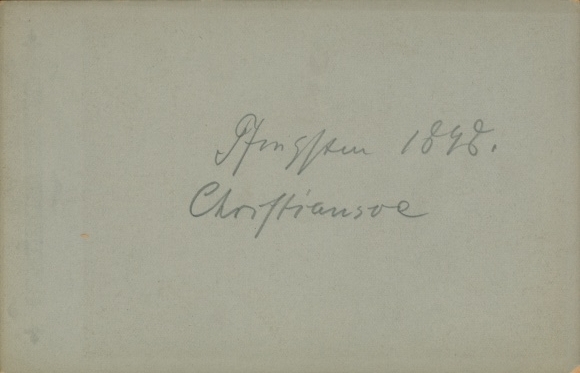 Pfingsten 1898.
Christiansoe